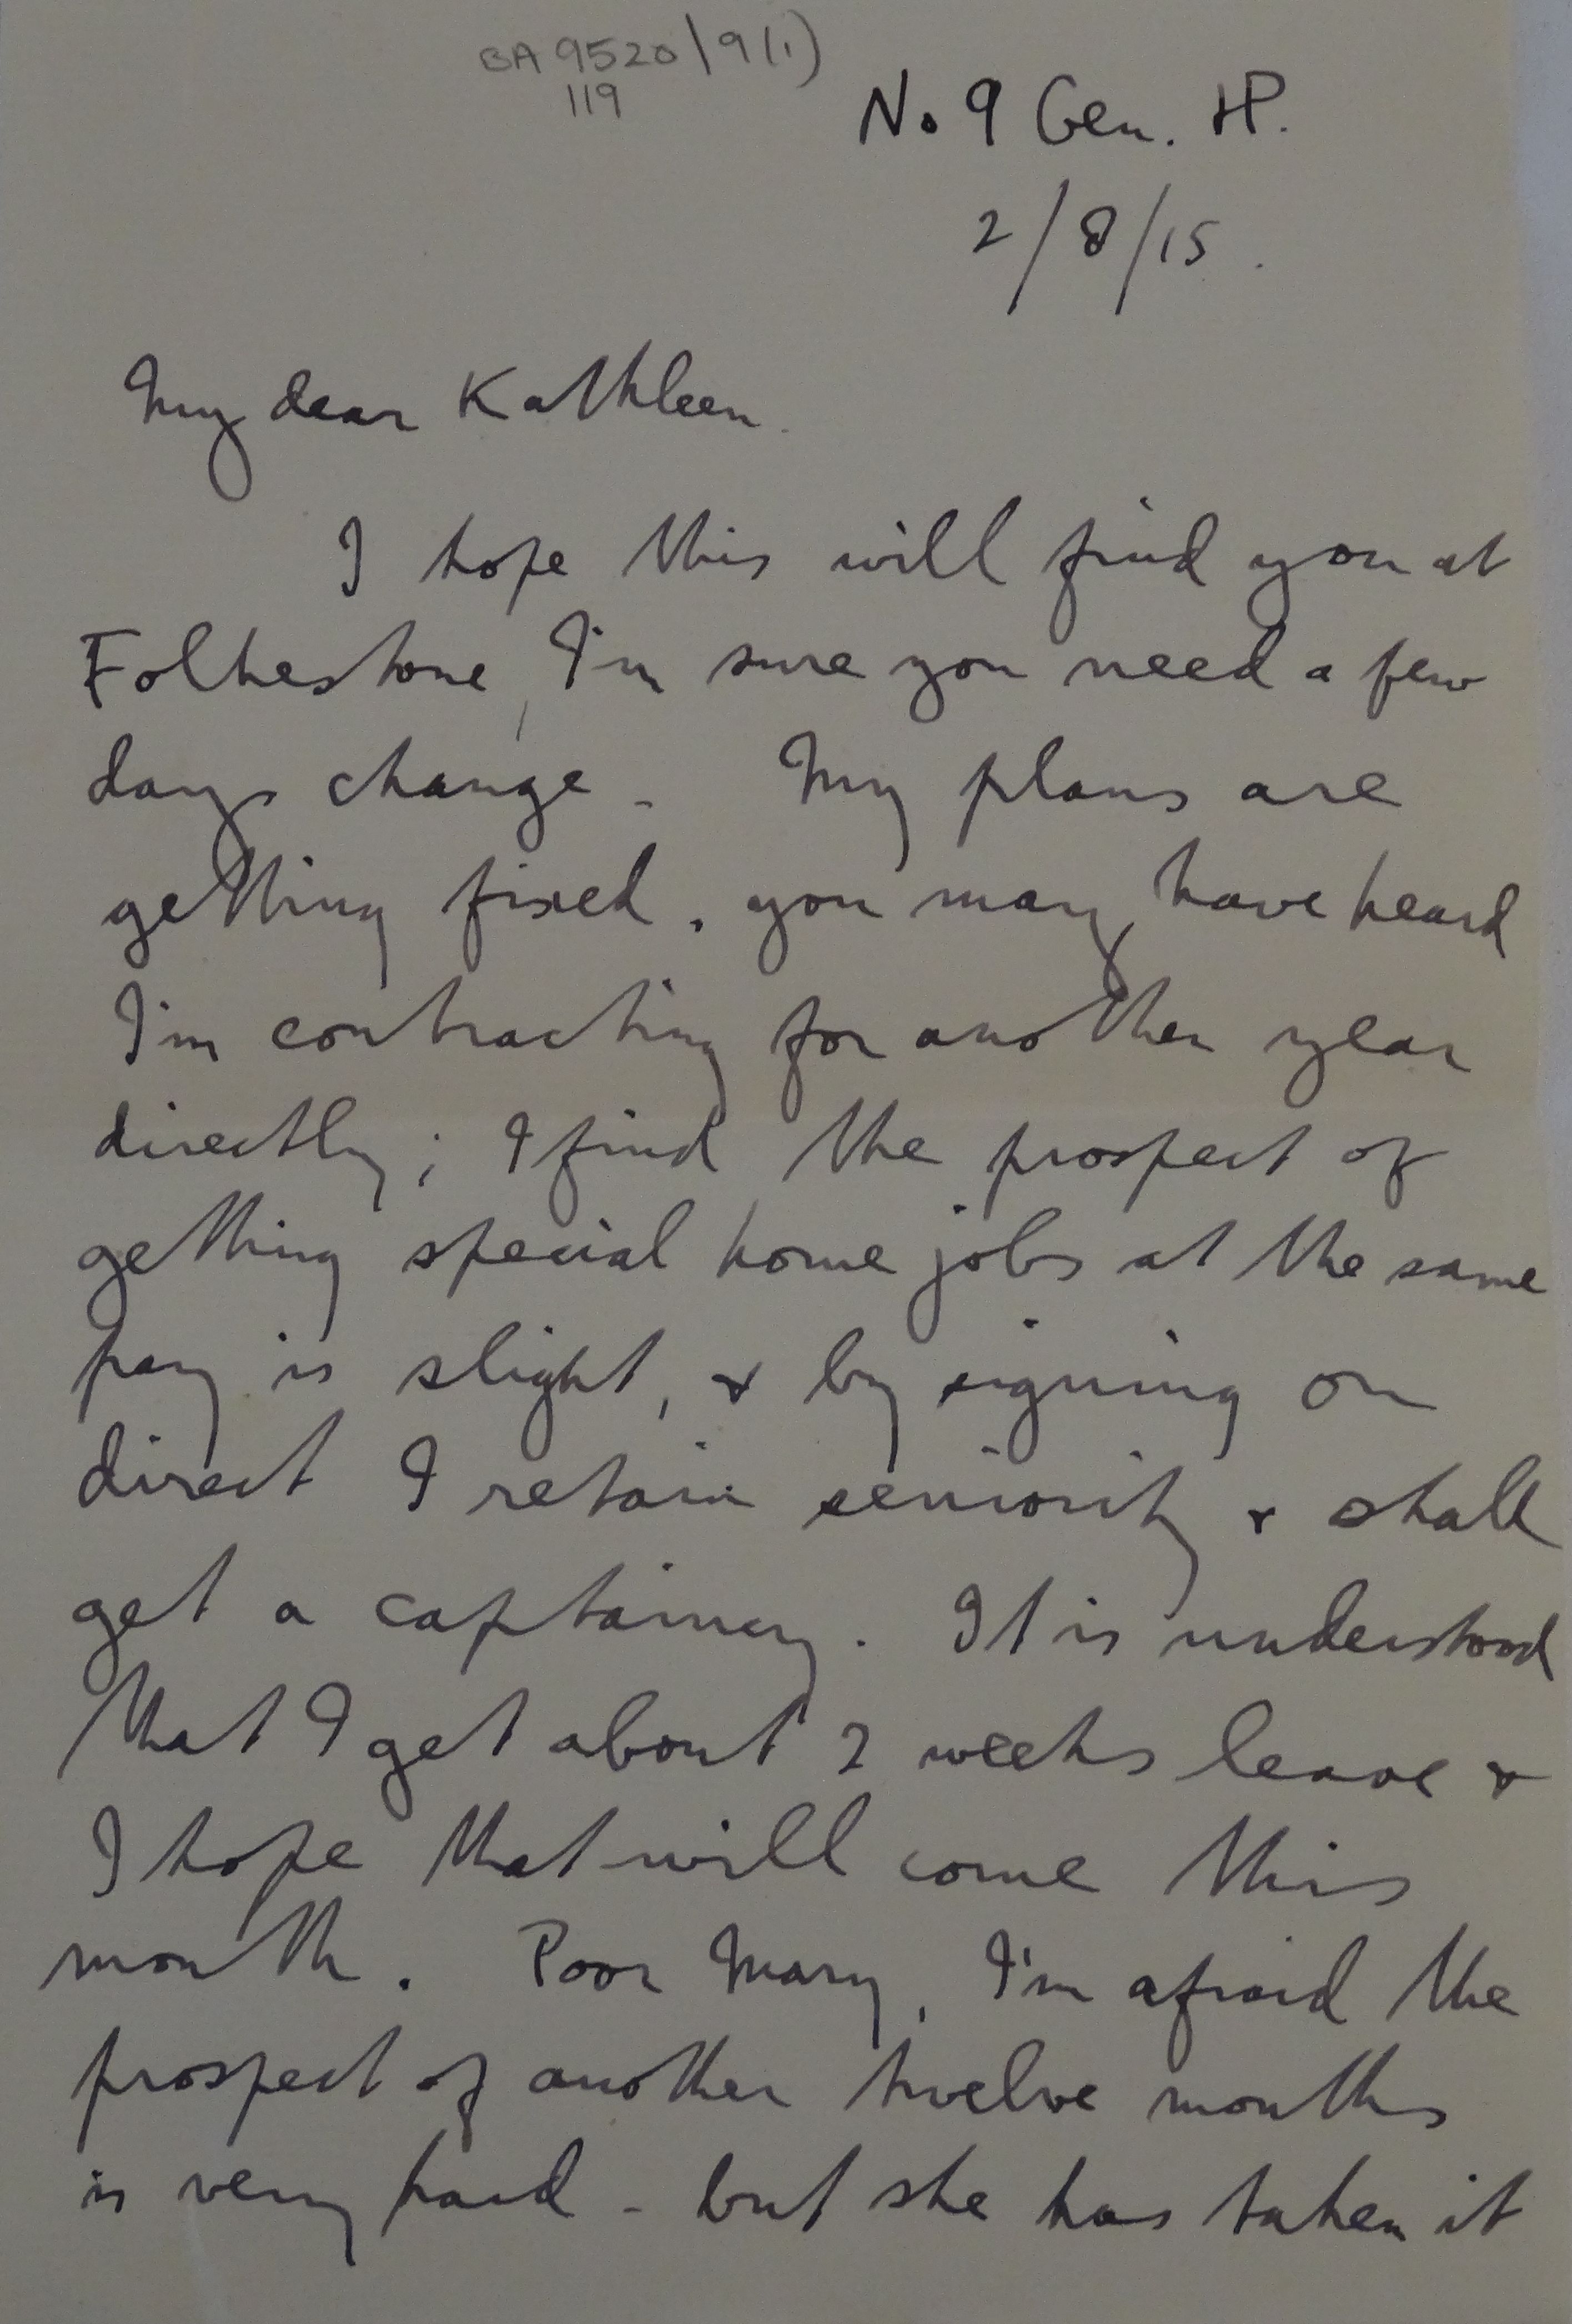 BA 9520/9(1)
119
No 9 Gen. H.
2/8/15.
My dear Kathleen.
I hope this will find you at
Folkestone, I'm sure you need a few
days change. My plans are
getting fixed. you may have heard
I'm contracting for another year
directly; I find the prospect of
getting special home jobs at the same
pay is slight, & by signing on
direct I retain seniority & shall
get a captaincy. It is understood
that I get about 2 weeks leave &
I hope that will come this
month. Poor Mary, I'm afraid the
prospect of another twelve months
is very hard - but she has taken it